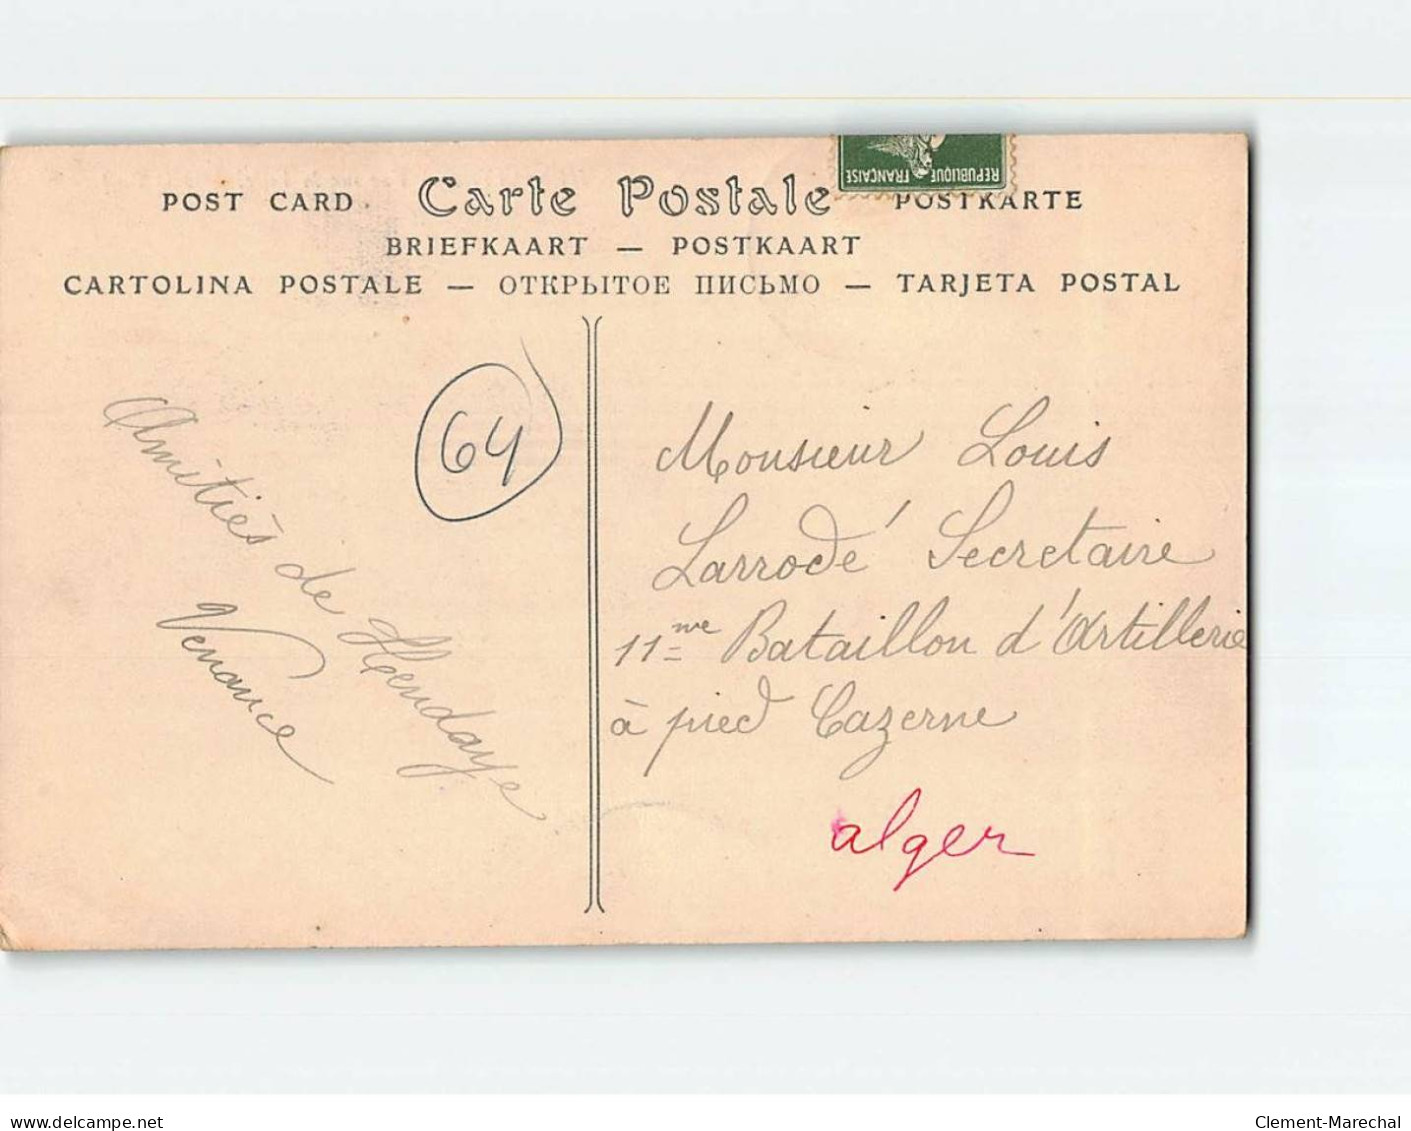 REPUBLIQUE FRANÇAISE
POST CARD. Carte Postale POSTKARTE
BRIEFKAART — POSTKAART
CARTOLINA POSTALE — ОТКРЫТОЕ ПИСЬМО — TARJETA POSTAL
64
Amitiès de Hendaye
Venance
Monsieur Louis
Larrodé Secretaire
11me Bataillon d'Artillerie
à pied Cazerne
alger
www.delcampe.net
Clement-Marechal